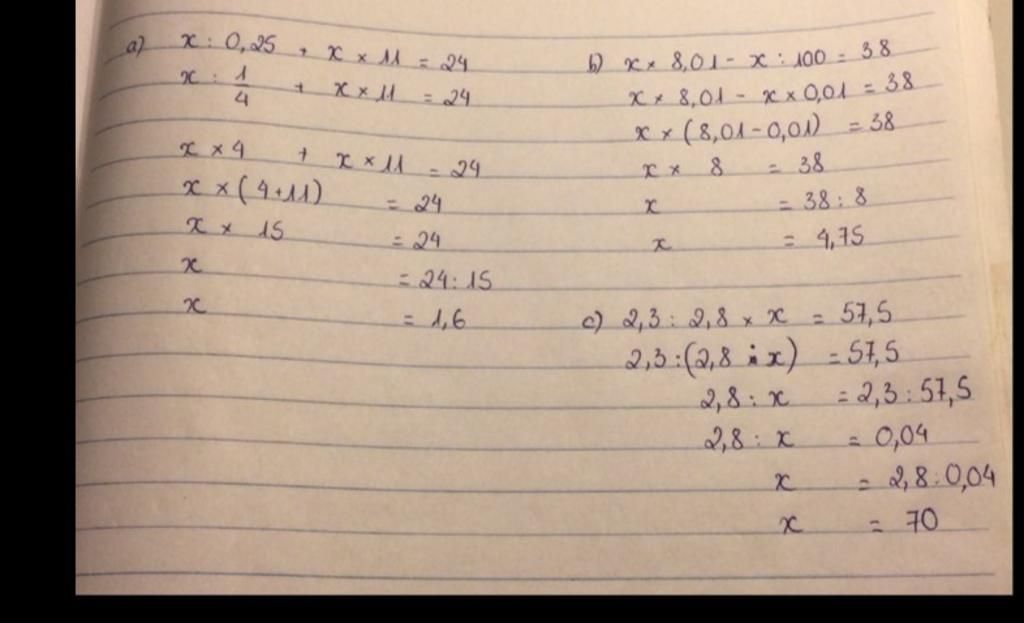 a) x : 0,25 + x × 11 = 24
x : 1/4 + x × 11 = 24
x × 4 + x × 11 = 24
x × (4+11) = 24
x × 15 = 24
x = 24 : 15
x = 1,6
b) x × 8,01 - x : 100 = 38
x × 8,01 - x × 0,01 = 38
x × (8,01 - 0,01) = 38
x × 8 = 38
x = 38 : 8
x = 4,75
c) 2,3 : 2,8 × x = 57,5
2,3 : (2,8 : x) = 57,5
2,8 : x = 2,3 : 57,5
2,8 : x = 0,04
x = 2,8 : 0,04
x = 70